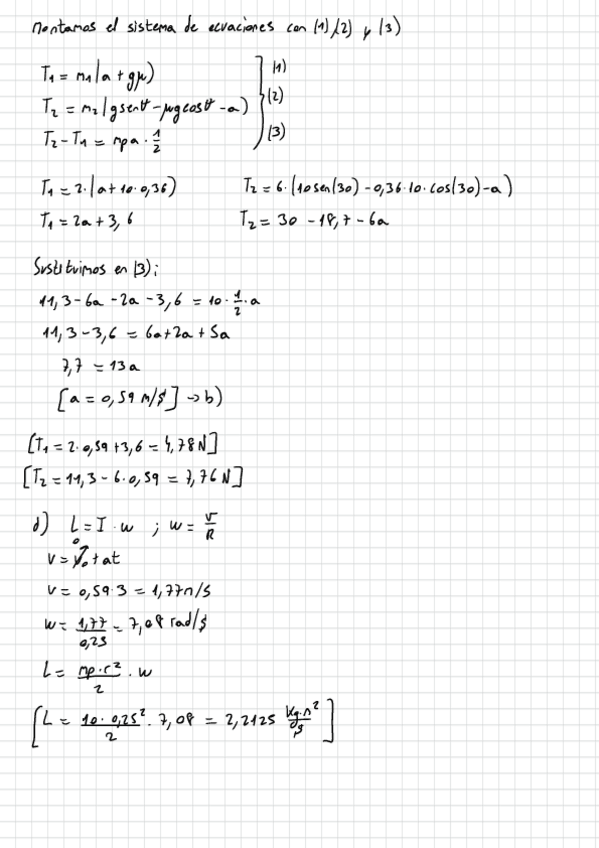 Montamos el sistema de ecuaciones con (1), (2) y (3)
T₁ = m₁(a + gμ) (1)
T₂ = m₂(g senθ - μg cosθ - a) (2)
T₂ - T₁ = mp a · 1/2 (3)
T₁ = 2·(a + 10·0,36) T₂ = 6·(10 sen(30) - 0,36·10·cos(30) - a)
T₁ = 2a + 3,6 T₂ = 30 - 18,7 - 6a
Sustituimos en (3):
11,3 - 6a - 2a - 3,6 = 10 · 1/2 · a
11,3 - 3,6 = 6a + 2a + 5a
7,7 = 13a
[a = 0,59 m/s²] → b)
[T₁ = 2·0,59 + 3,6 = 4,78 N]
[T₂ = 11,3 - 6·0,59 = 7,76 N]
d) L = I · w ; w = v/R
v = v₀ + at
0
v = 0,59·3 = 1,77 m/s
w = 1,77/0,25 = 7,08 rad/s
L = mp·r²/2 · w
[L = 10·0,25²/2 · 7,08 = 2,2125 kg·m²/s]